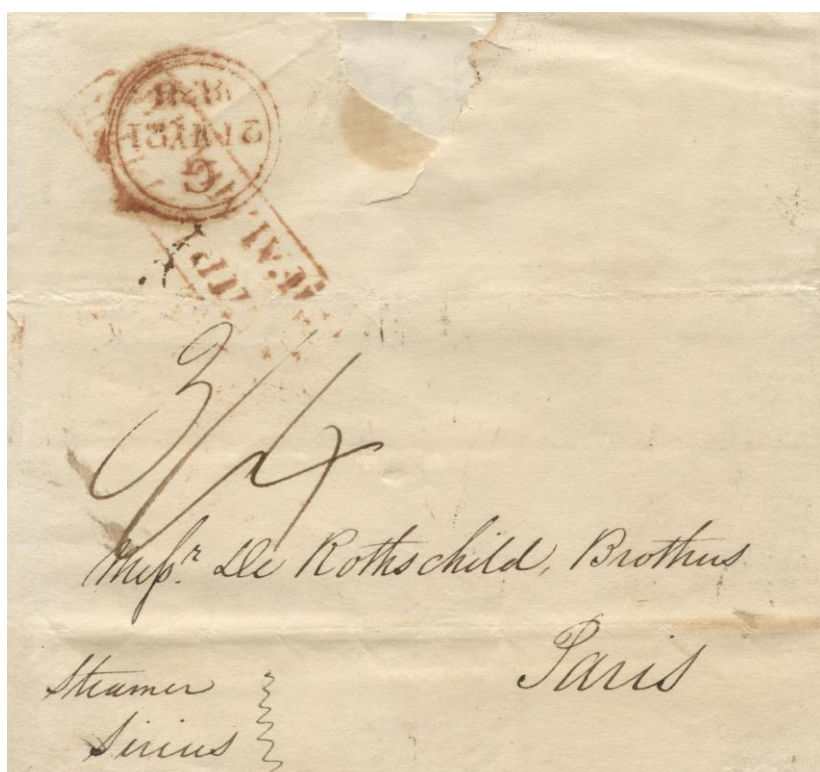 G
21MY21
1838
3/4
Messr. De Rothschild, Brothers
Paris
Steamer
Sirius